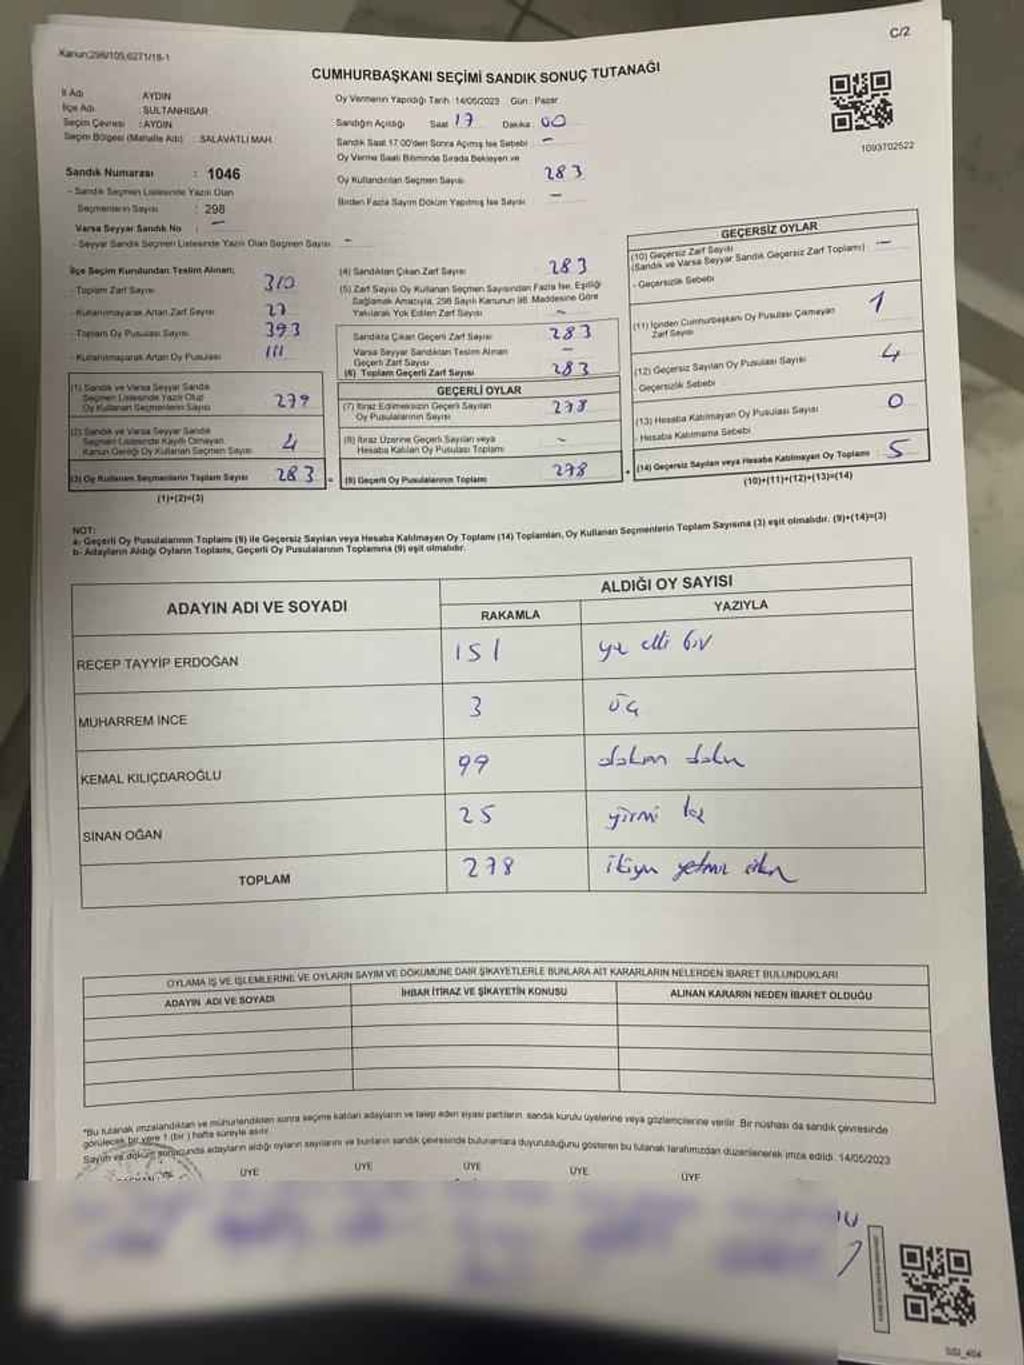 C/2
Kanun:298/105,6271/18-1
CUMHURBAŞKANI SEÇİMİ SANDIK SONUÇ TUTANAĞI
İl Adı AYDIN
İlçe Adı : SULTANHİSAR
Seçim Çevresi : AYDIN
Seçim Bölgesi (Mahalle Adı) : SALAVATLI MAH.
Sandık Numarası : 1046
- Sandık Seçmen Listesinde Yazılı Olan
Seçmenlerin Sayısı : 298
Varsa Seyyar Sandık No : -
- Seyyar Sandık Seçmen Listesinde Yazılı Olan Seçmen Sayısı : -
Oy Vermenin Yapıldığı Tarih :14/05/2023 Gün : Pazar
Sandığın Açıldığı Saat : 17 Dakika : 00
Sandık Saat 17:00'den Sonra Açmış İse Sebebi : -
Oy Verme Saati Bitiminde Sırada Bekleyen ve
Oy Kullandırılan Seçmen Sayısı 283
Birden Fazla Sayım Döküm Yapılmış İse Sayısı -
1093702522
İlçe Seçim Kurulundan Teslim Alınan;
- Toplam Zarf Sayısı 310
- Kullanılmayarak Artan Zarf Sayısı 27
- Toplam Oy Pusulası Sayısı 393
- Kullanılmayarak Artan Oy Pusulası 111
(1) Sandık ve Varsa Seyyar Sandık
Seçmen Listesinde Yazılı Olup
Oy Kullanan Seçmenlerin Sayısı 279
(2) Sandık ve Varsa Seyyar Sandık
Seçmen Listesinde Kayıtlı Olmayan
Kanun Gereği Oy Kullanan Seçmen Sayısı 4
(3) Oy Kullanan Seçmenlerin Toplam Sayısı 283
(1)+(2)=(3)
(4) Sandıktan Çıkan Zarf Sayısı 283
(5) Zarf Sayısı Oy Kullanan Seçmen Sayısından Fazla İse, Eşitliği
Sağlamak Amacıyla, 298 Sayılı Kanunun 98. Maddesine Göre
Yakılarak Yok Edilen Zarf Sayısı -
Sandıkta Çıkan Geçerli Zarf Sayısı 283
Varsa Seyyar Sandıktan Teslim Alınan
Geçerli Zarf Sayısı -
(6) Toplam Geçerli Zarf Sayısı 283
GEÇERLİ OYLAR
(7) İtiraz Edilmeksizin Geçerli Sayılan
Oy Pusulalarının Sayısı 278
(8) İtiraz Üzerine Geçerli Sayılan veya
Hesaba Katılan Oy Pusulası Toplamı -
(9) Geçerli Oy Pusulalarının Toplamı 278
GEÇERSİZ OYLAR
(10) Geçersiz Zarf Sayısı
(Sandık ve Varsa Seyyar Sandık Geçersiz Zarf Toplamı) -
- Geçersizlik Sebebi
(11) İçinden Cumhurbaşkanı Oy Pusulası Çıkmayan
Zarf Sayısı 1
(12) Geçersiz Sayılan Oy Pusulası Sayısı 4
- Geçersizlik Sebebi
(13) Hesaba Katılmayan Oy Pusulası Sayısı 0
- Hesaba Katılmama Sebebi
(14) Geçersiz Sayılan veya Hesaba Katılmayan Oy Toplamı : 5
(10)+(11)+(12)+(13)=(14)
NOT:
a- Geçerli Oy Pusulalarının Toplamı (9) ile Geçersiz Sayılan veya Hesaba Katılmayan Oy Toplamı (14) Toplamları, Oy Kullanan Seçmenlerin Toplam Sayısına (3) eşit olmalıdır. (9)+(14)=(3)
b- Adayların Aldığı Oyların Toplamı, Geçerli Oy Pusulalarının Toplamına (9) eşit olmalıdır.
ADAYIN ADI VE SOYADI
ALDIĞI OY SAYISI
RAKAMLA YAZIYLA
RECEP TAYYİP ERDOĞAN 151 yüz elli bir
MUHARREM İNCE 3 üç
KEMAL KILIÇDAROĞLU 99 doksan dokuz
SİNAN OĞAN 25 yirmi beş
TOPLAM 278 ikiyüz yetmiş sekiz
OYLAMA İŞ VE İŞLEMLERİNE VE OYLARIN SAYIM VE DÖKÜMÜNE DAİR ŞİKAYETLERLE BUNLARA AİT KARARLARIN NELERDEN İBARET BULUNDUKLARI
ADAYIN ADI VE SOYADI İHBAR İTİRAZ VE ŞİKAYETİN KONUSU ALINAN KARARIN NEDEN İBARET OLDUĞU
*Bu tutanak imzalandıktan ve mühürlendikten sonra seçime katılan adayların ve talep eden siyasi partilerin, sandık kurulu üyelerine veya gözlemcilerine verilir. Bir nüshası da sandık çevresinde
görülecek bir yere 1 (bir) hafta süreyle asılır.
Sayım ve döküm sonucunda adayların aldığı oyların sayılarını ve bunların sandık çevresinde bulunanlara duyurulduğunu gösteren bu tutanak tarafımızdan düzenlenerek imza edildi. 14/05/2023
ÜYE ÜYE ÜYE ÜYE ÜYE